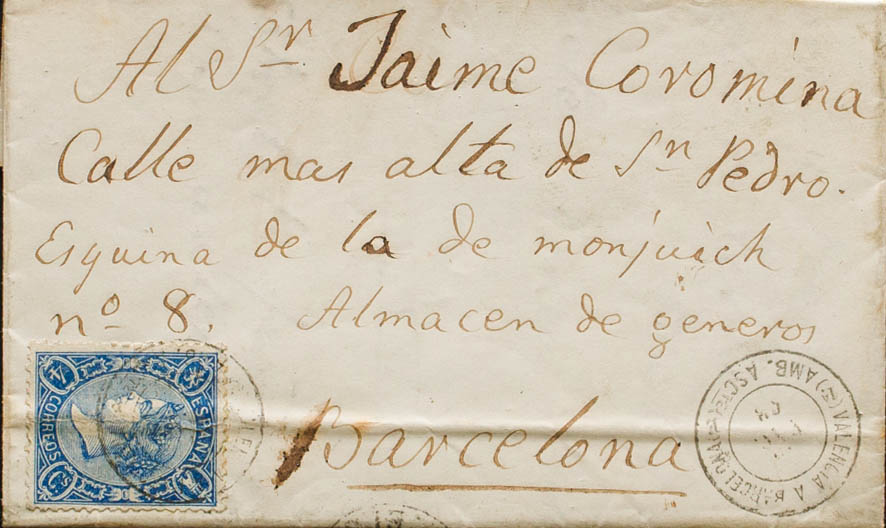 Al Sr Jaime Coromina
Calle mas alta de Sn Pedro.
Esquina de la de monjuich
nº 8. Almacen de generos
Barcelona
ESPAÑA
CORREOS
4 CS
VALENCIA A BARCELONA
AMB. ASC